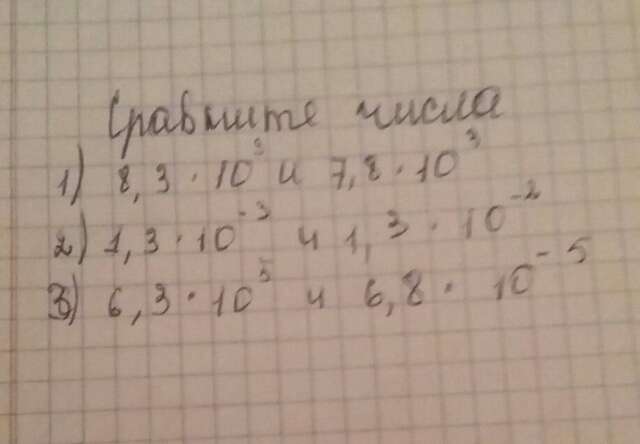 Сравните числа
1) 8,3 · 10³ и 7,8 · 10³
2) 1,3 · 10⁻³ и 1,3 · 10⁻²
3) 6,3 · 10⁵ и 6,8 · 10⁻⁵